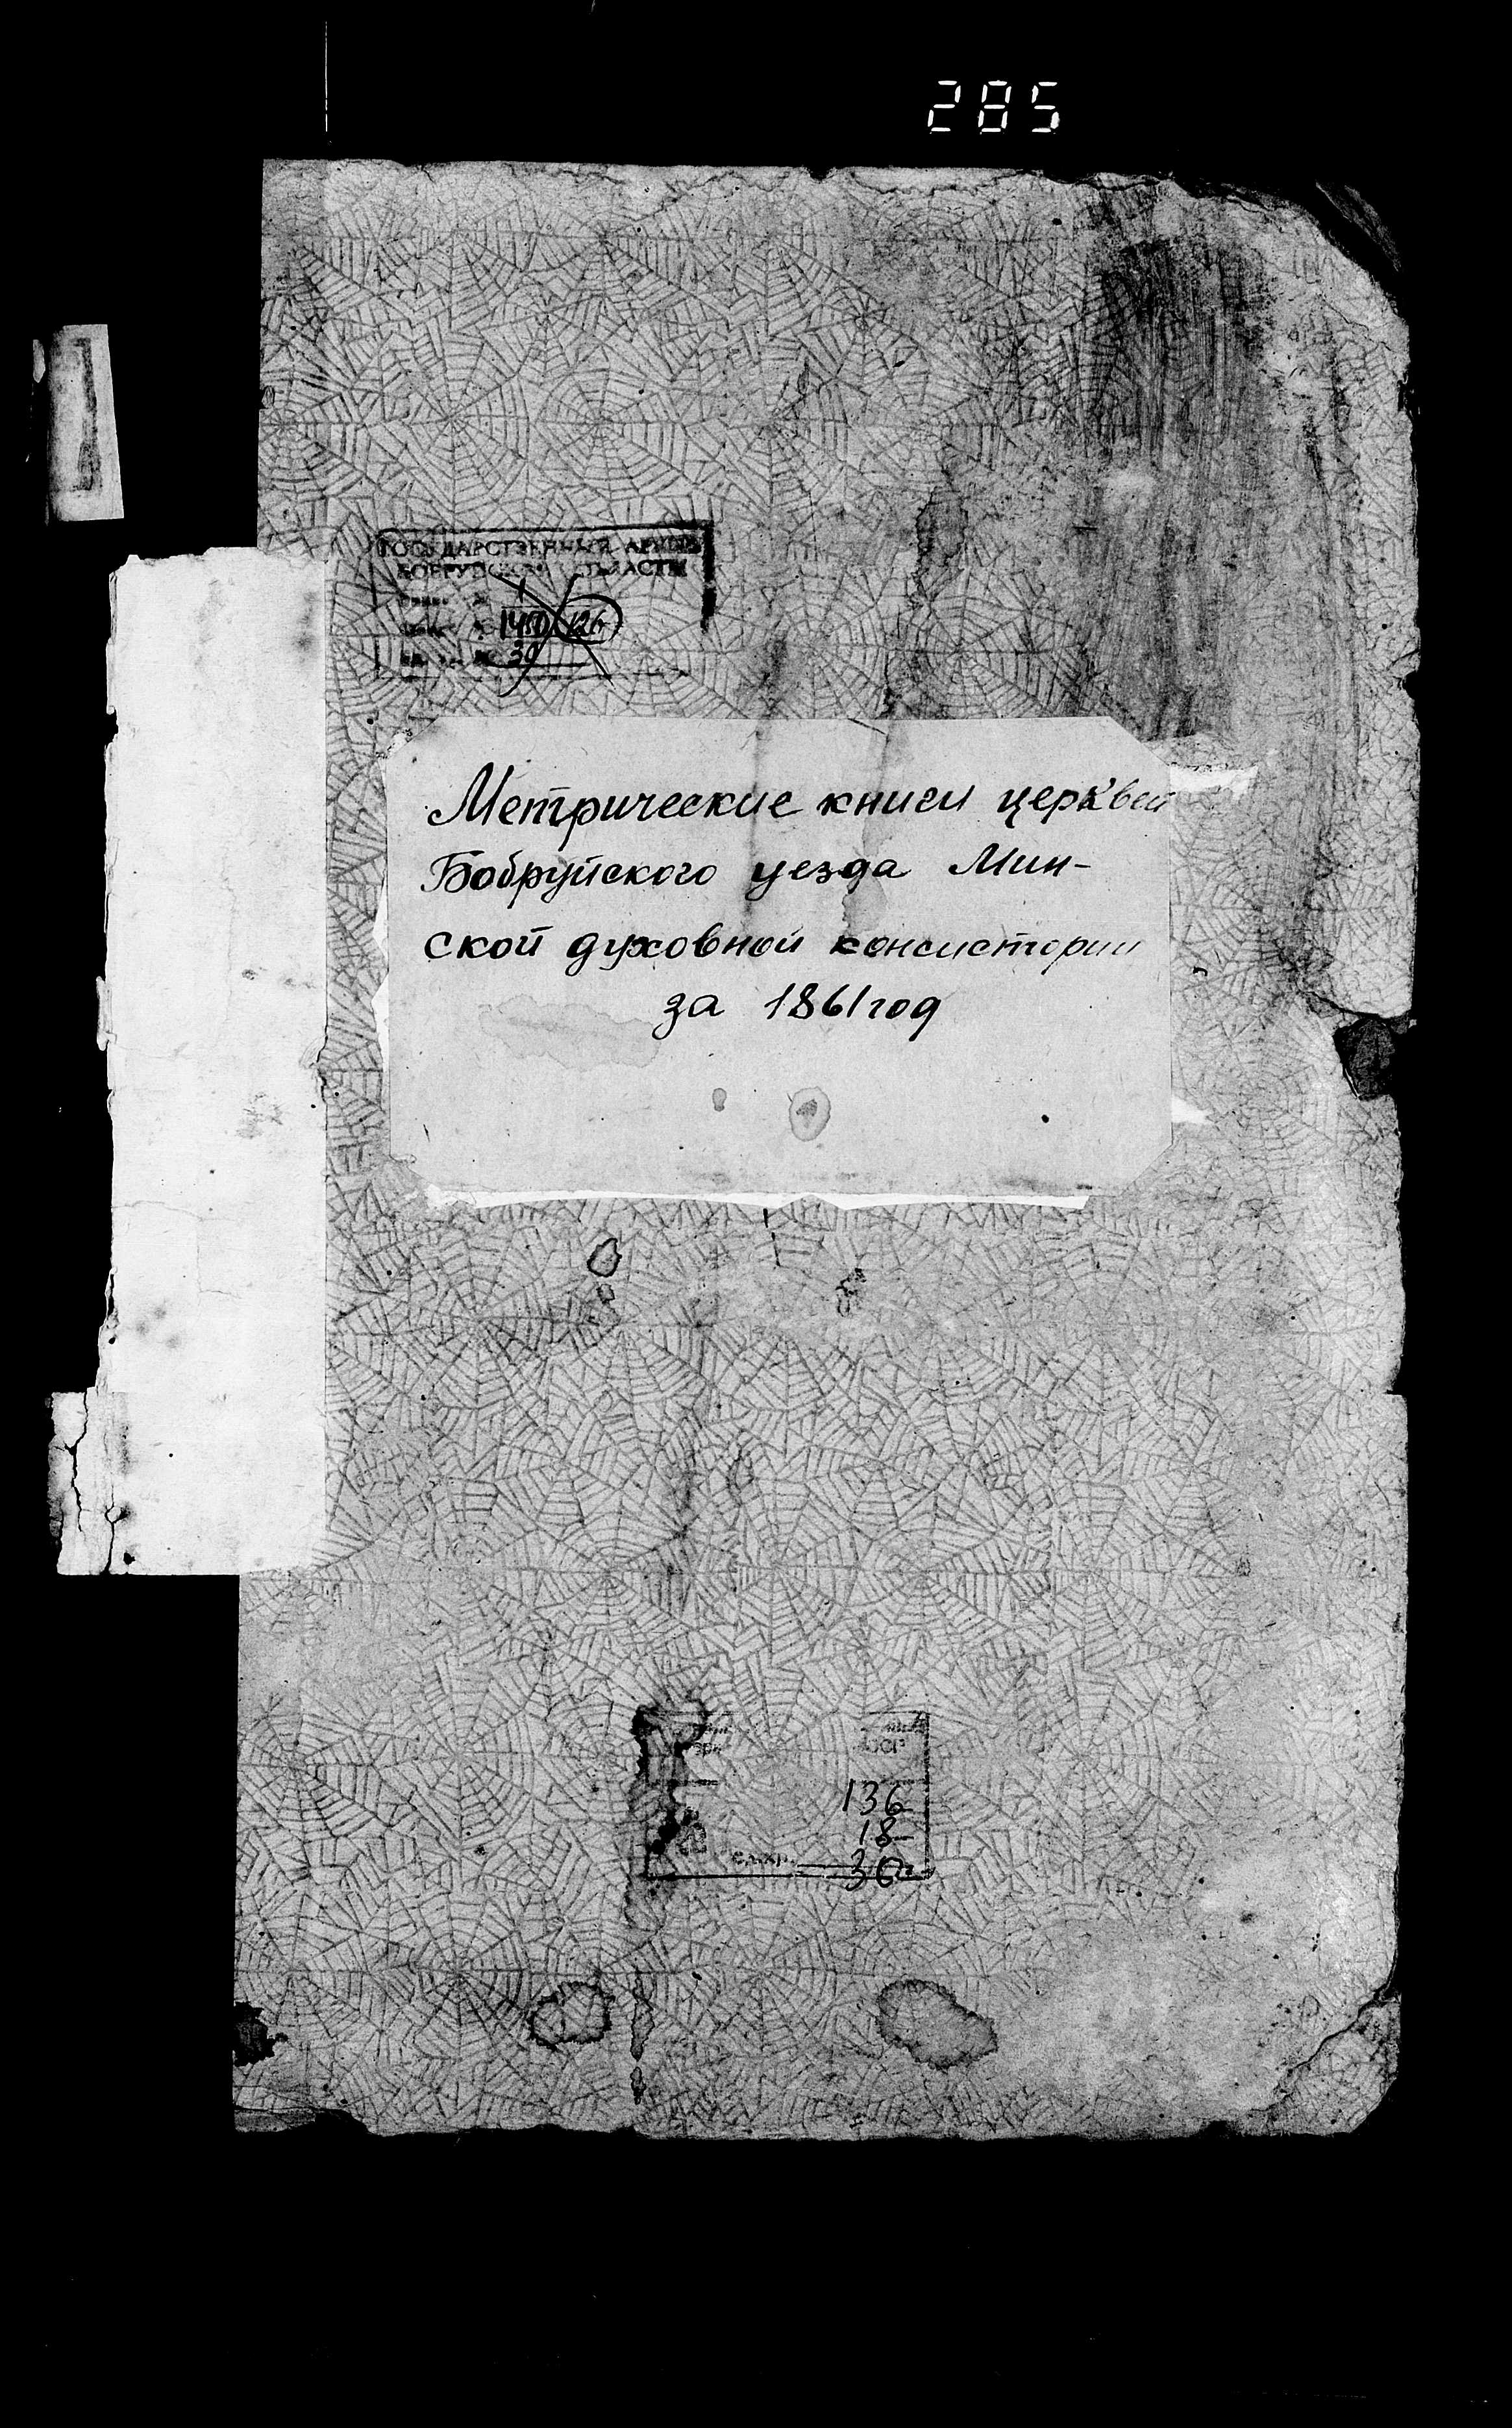 285
ГОСУДАРСТВЕННЫЙ АРХИВ
БОБРУЙСКОЙ ОБЛАСТИ
126
39
Метрические книги церквей
Бобруйского уезда Мин-
ской духовной консистории
за 1861 год
136
18
ед. хр. 30